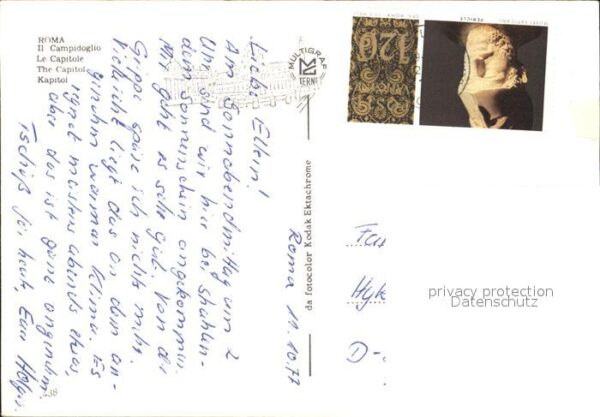 ROMA
Il Campidoglio
Le Capitole
The Capitole
Kapitol
MULTIGRAF
TERNI
da fotocolor Kodak Ektachrome
Roma 11.10.77
Liebe Eltern!
Am Sonnabendmittag um 2
Uhr sind wir hier bei strahlen-
dem Sonnenschein angekommen.
Mir geht es sehr gut. Von der
Grippe spüre ich nichts mehr.
Vielleicht liegt das an dem an-
genehm warmen Klima. Es
regnet meistens abends etwas,
aber das ist ganz angenehm.
Tschüß für heute, Euer
120
438
privacy protection
Datenschutz
D-